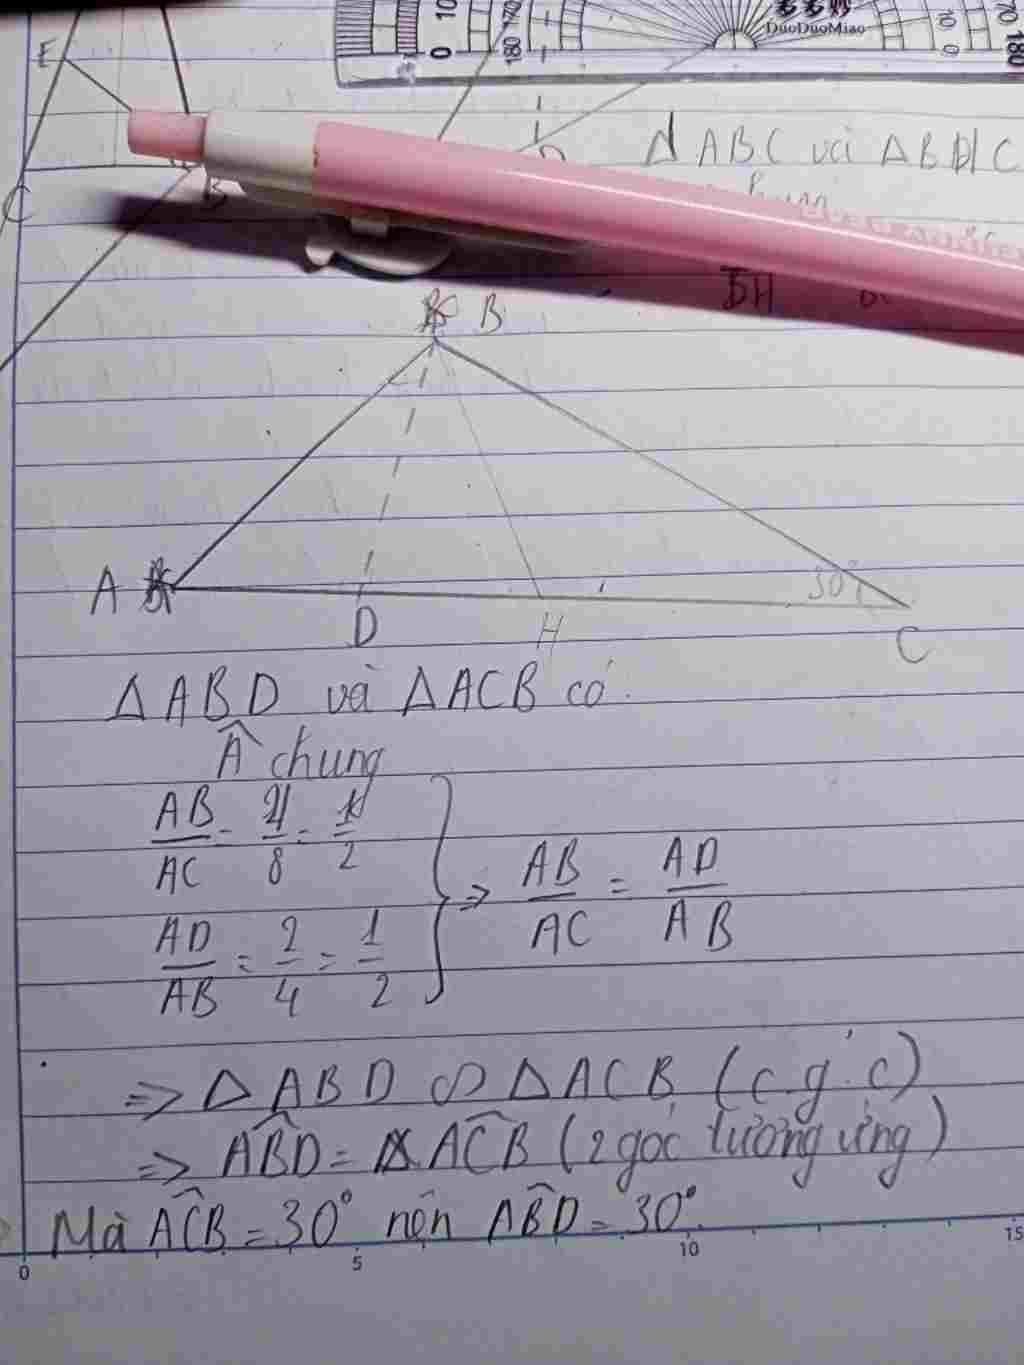 0 10
180 170
DuoDuoMiao
10 0
70 180
E
Δ ABC và ΔBDC
C
B
BH
B
A
30°
D
H
C
ΔABD và ΔACB có
Â chung
AB/AC = 4/8 = 1/2
AD/AB = 2/4 = 1/2
⇒ AB/AC = AD/AB
⇒ Δ ABD ∽ ΔACB (c.g.c)
⇒ ABD̂ = ACB̂ (2 góc tương ứng)
Mà ACB̂ = 30° nên ABD̂ = 30°.
0 5 10 15